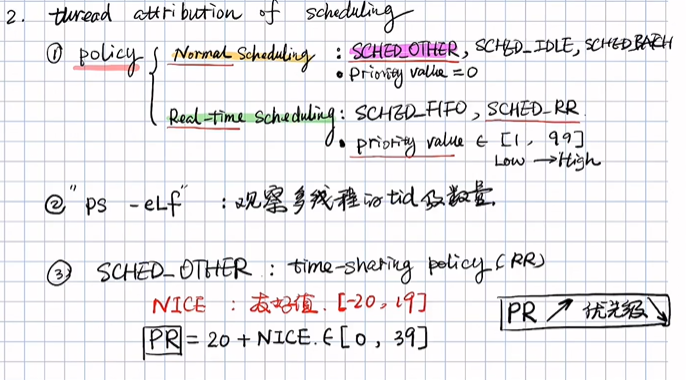 2. thread attribution of scheduling
① policy { Normal Scheduling : SCHED_OTHER, SCHED_IDLE, SCHED_BACH
• priority value = 0
Real-time scheduling : SCHED_FIFO, SCHED_RR
• priority value ∈ [1, 99]
Low → High
② "ps -eLf" : 观察多线程的tid及数量.
③ SCHED_OTHER : time-sharing policy (RR)
NICE : 友好值. [-20, 19]
PR = 20 + NICE. ∈ [0, 39]
PR ↗ 优先级 ↘